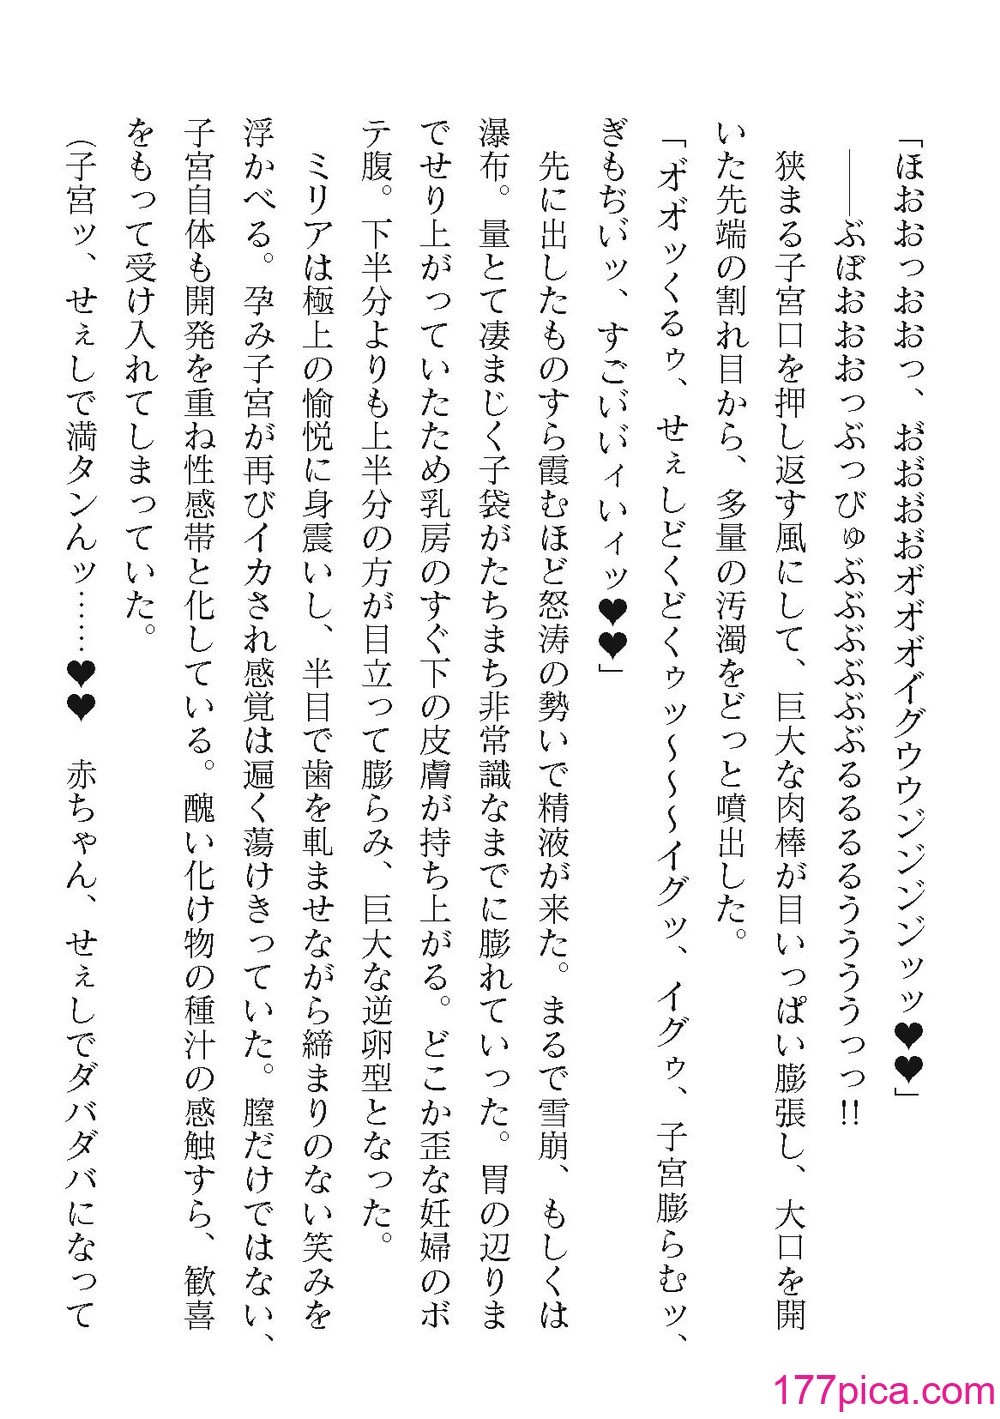 「ほおおっおおっ、お゙お゙お゙お゙オ゙オ゙オ゙イ゙グウウン゙ン゙ン゙ン゙ッッ♥♥」
――ぶぼおおおっぶっびゅぶぶぶぶぶぶるるるるううううっっ!!
狭まる子宮口を押し返す風にして、巨大な肉棒が目いっぱい膨張し、大口を開
いた先端の割れ目から、多量の汚濁をどっと噴出した。
「オ゙オ゙ッくるゥ、せぇしどくどくゥッ～～～イグッ、イグゥ、子宮膨らむッ、
ぎもぢい゙ッ、すごい゙い゙ィいィッ♥♥」
先に出したものすら霞むほど怒涛の勢いで精液が来た。まるで雪崩、もしくは
瀑布。量とて凄まじく子袋がたちまち非常識なまでに膨れていった。胃の辺りま
でせり上がっていたため乳房のすぐ下の皮膚が持ち上がる。どこか歪な妊婦のボ
テ腹。下半分よりも上半分の方が目立って膨らみ、巨大な逆卵型となった。
ミリアは極上の愉悦に身震いし、半目で歯を軋ませながら締まりのない笑みを
浮かべる。孕み子宮が再びイカされ感覚は遍く蕩けきっていた。膣だけではない、
子宮自体も開発を重ね性感帯と化している。醜い化け物の種汁の感触すら、歓喜
をもって受け入れてしまっていた。
（子宮ッ、せぇしで満タンんッ……♥♥　赤ちゃん、せぇしでダバダバになって
177pica.com